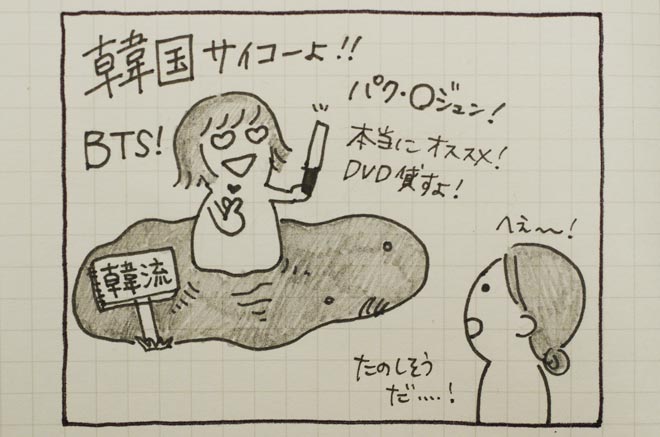 韓国サイコーよ!!
BTS!
パク・〇ジュン!
本当にオススメ!
DVD貸すよ!
韓流
へぇ〜!
たのしそう
だ....!